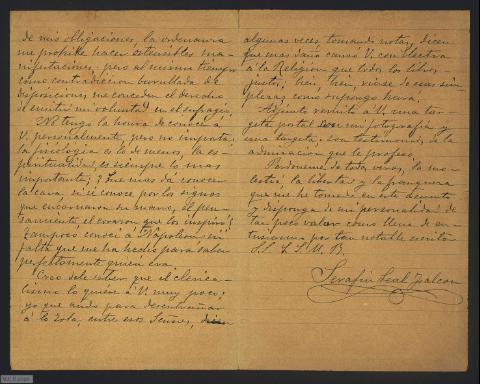 de mis obligaciones, la ordenanza
me prohibe hacer ostensibles ma-
nifestaciones, pero al mismo tiempo
como contradicion barullada de
disposiciones, me conceden el derecho
de emitir mi voluntad en el sufragio.
No tengo la honra de conocer á
V. personalmente, pero no importa
la fisiologia es lo de menos, la es-
piritualidad, es siempre lo mas
importante; ¿que mas dá conocer
la cara si se conoce por los signos
que encarnara su mano, el pen-
samiento el corazon que los inspiró?
Tampoco conocí á Napoleon ni
falta que me ha hecho para saber
perfectamente quien era
Creo debe saber que el clerica-
lismo lo quiere á V. muy poco;
ya que anda para desentrañar
á lo Zola, entre esos Señores,
algunas veces tomando notas, dicen
que mas daño causó V. con Electra
á la Religion que todos los libros
juntos, hein, hein, riase de esas sim-
plezas como supongo hará.
Adjunto remito á V. una tar-
geta postal con mi fotografia y
una targeta, con testimonio, de la
admiracion que le profeso.
Perdoneme, de todas veras, la mo-
lestia, la libertad y la franqueza
que me he tomado en este asunto
y disponga de mi personalidad de
tan poco valor como llena de en-
tusiasmo por tan notable escritor
S.S. Q.S.M.B.
Serafin Leal Falcon